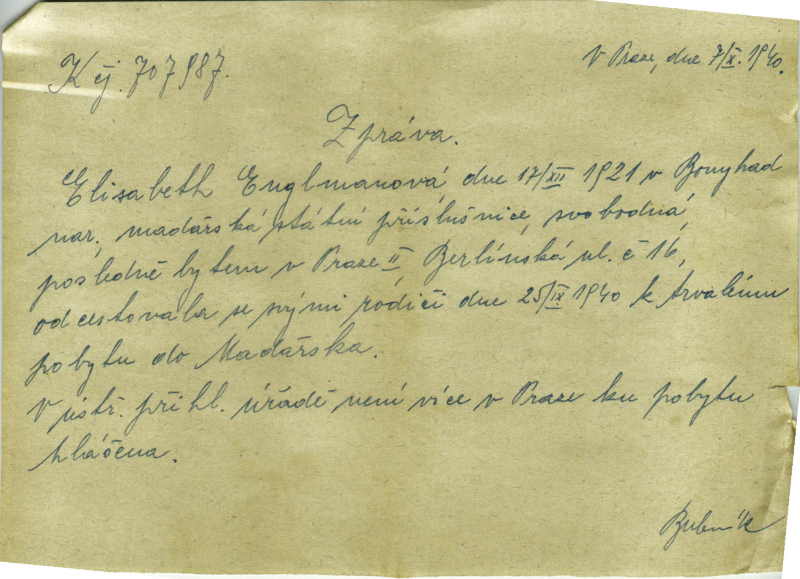 K čj. 707987.
V Praze, dne 7/X. 1940.
Zpráva.
Elisabeth Englmanová, dne 17/XII 1921 v Bonyhad
nar., maďarská státní příslušnice, svobodná,
posledně bytem v Praze II, Berlínská ul. č 16,
odcestovala se svými rodiči dne 25/IX 1940 k trvalému
pobytu do Maďarska.
V ústř. přihl. úřadě není více v Praze ku pobytu
hlášena.
Bubeník